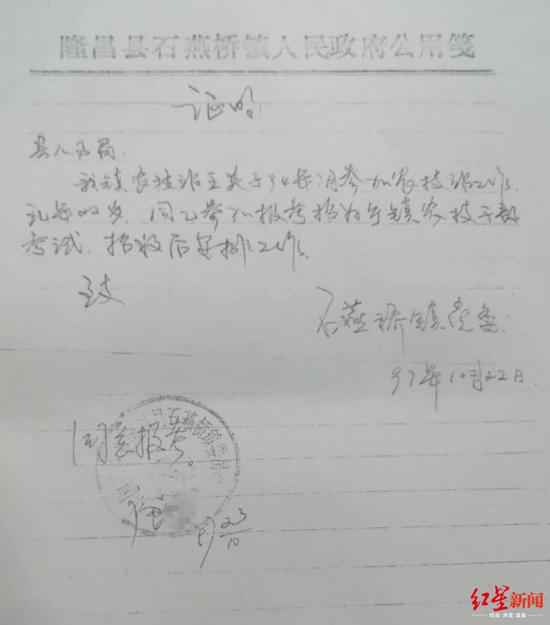 隆昌县石燕桥镇人民政府公用笺
证明
县人事局
我镇农技站王英于94年月参加农技站工作
同志参加报考招为乡镇农技干部
考试,招收后安排工作
致
石燕桥镇党委
97年10月22日
石燕桥镇委员
同意报考。
97 23/10
红星新闻